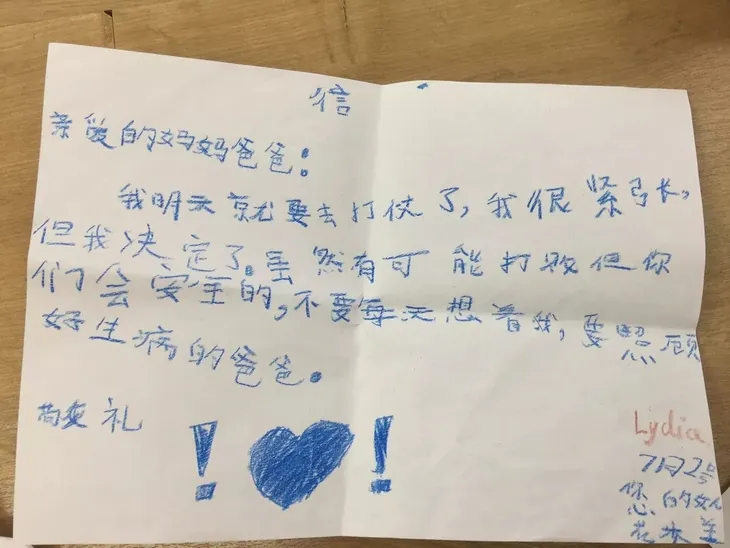 信
亲爱的妈妈爸爸：
我明天就要去打仗了，我很紧张，
但我决定了.虽然有可能打败但你
们会安全的，不要每天想着我，要照顾
好生病的爸爸。
敬礼
! !
Lydia
7月2号
您的女儿
花木兰